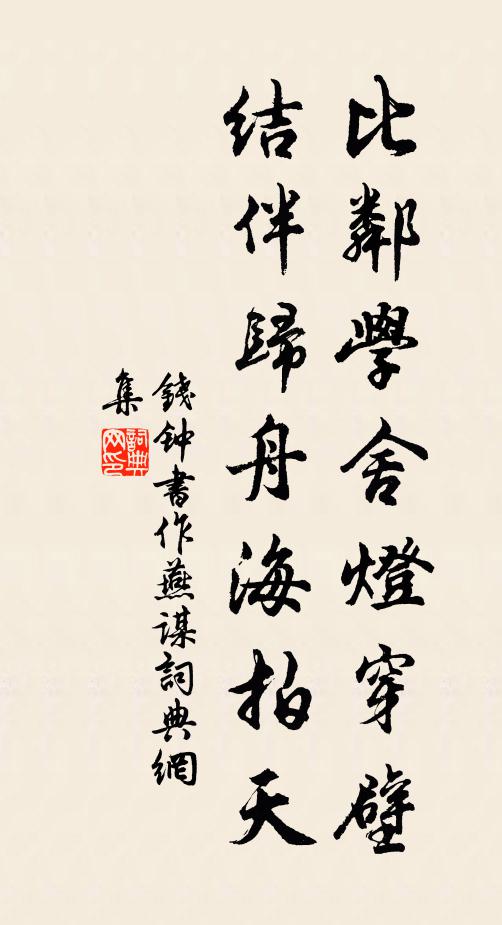 比鄰學舍燈穿壁
结伴歸舟海拍天
錢钟書作燕谋詞典網
集
詞典
网印